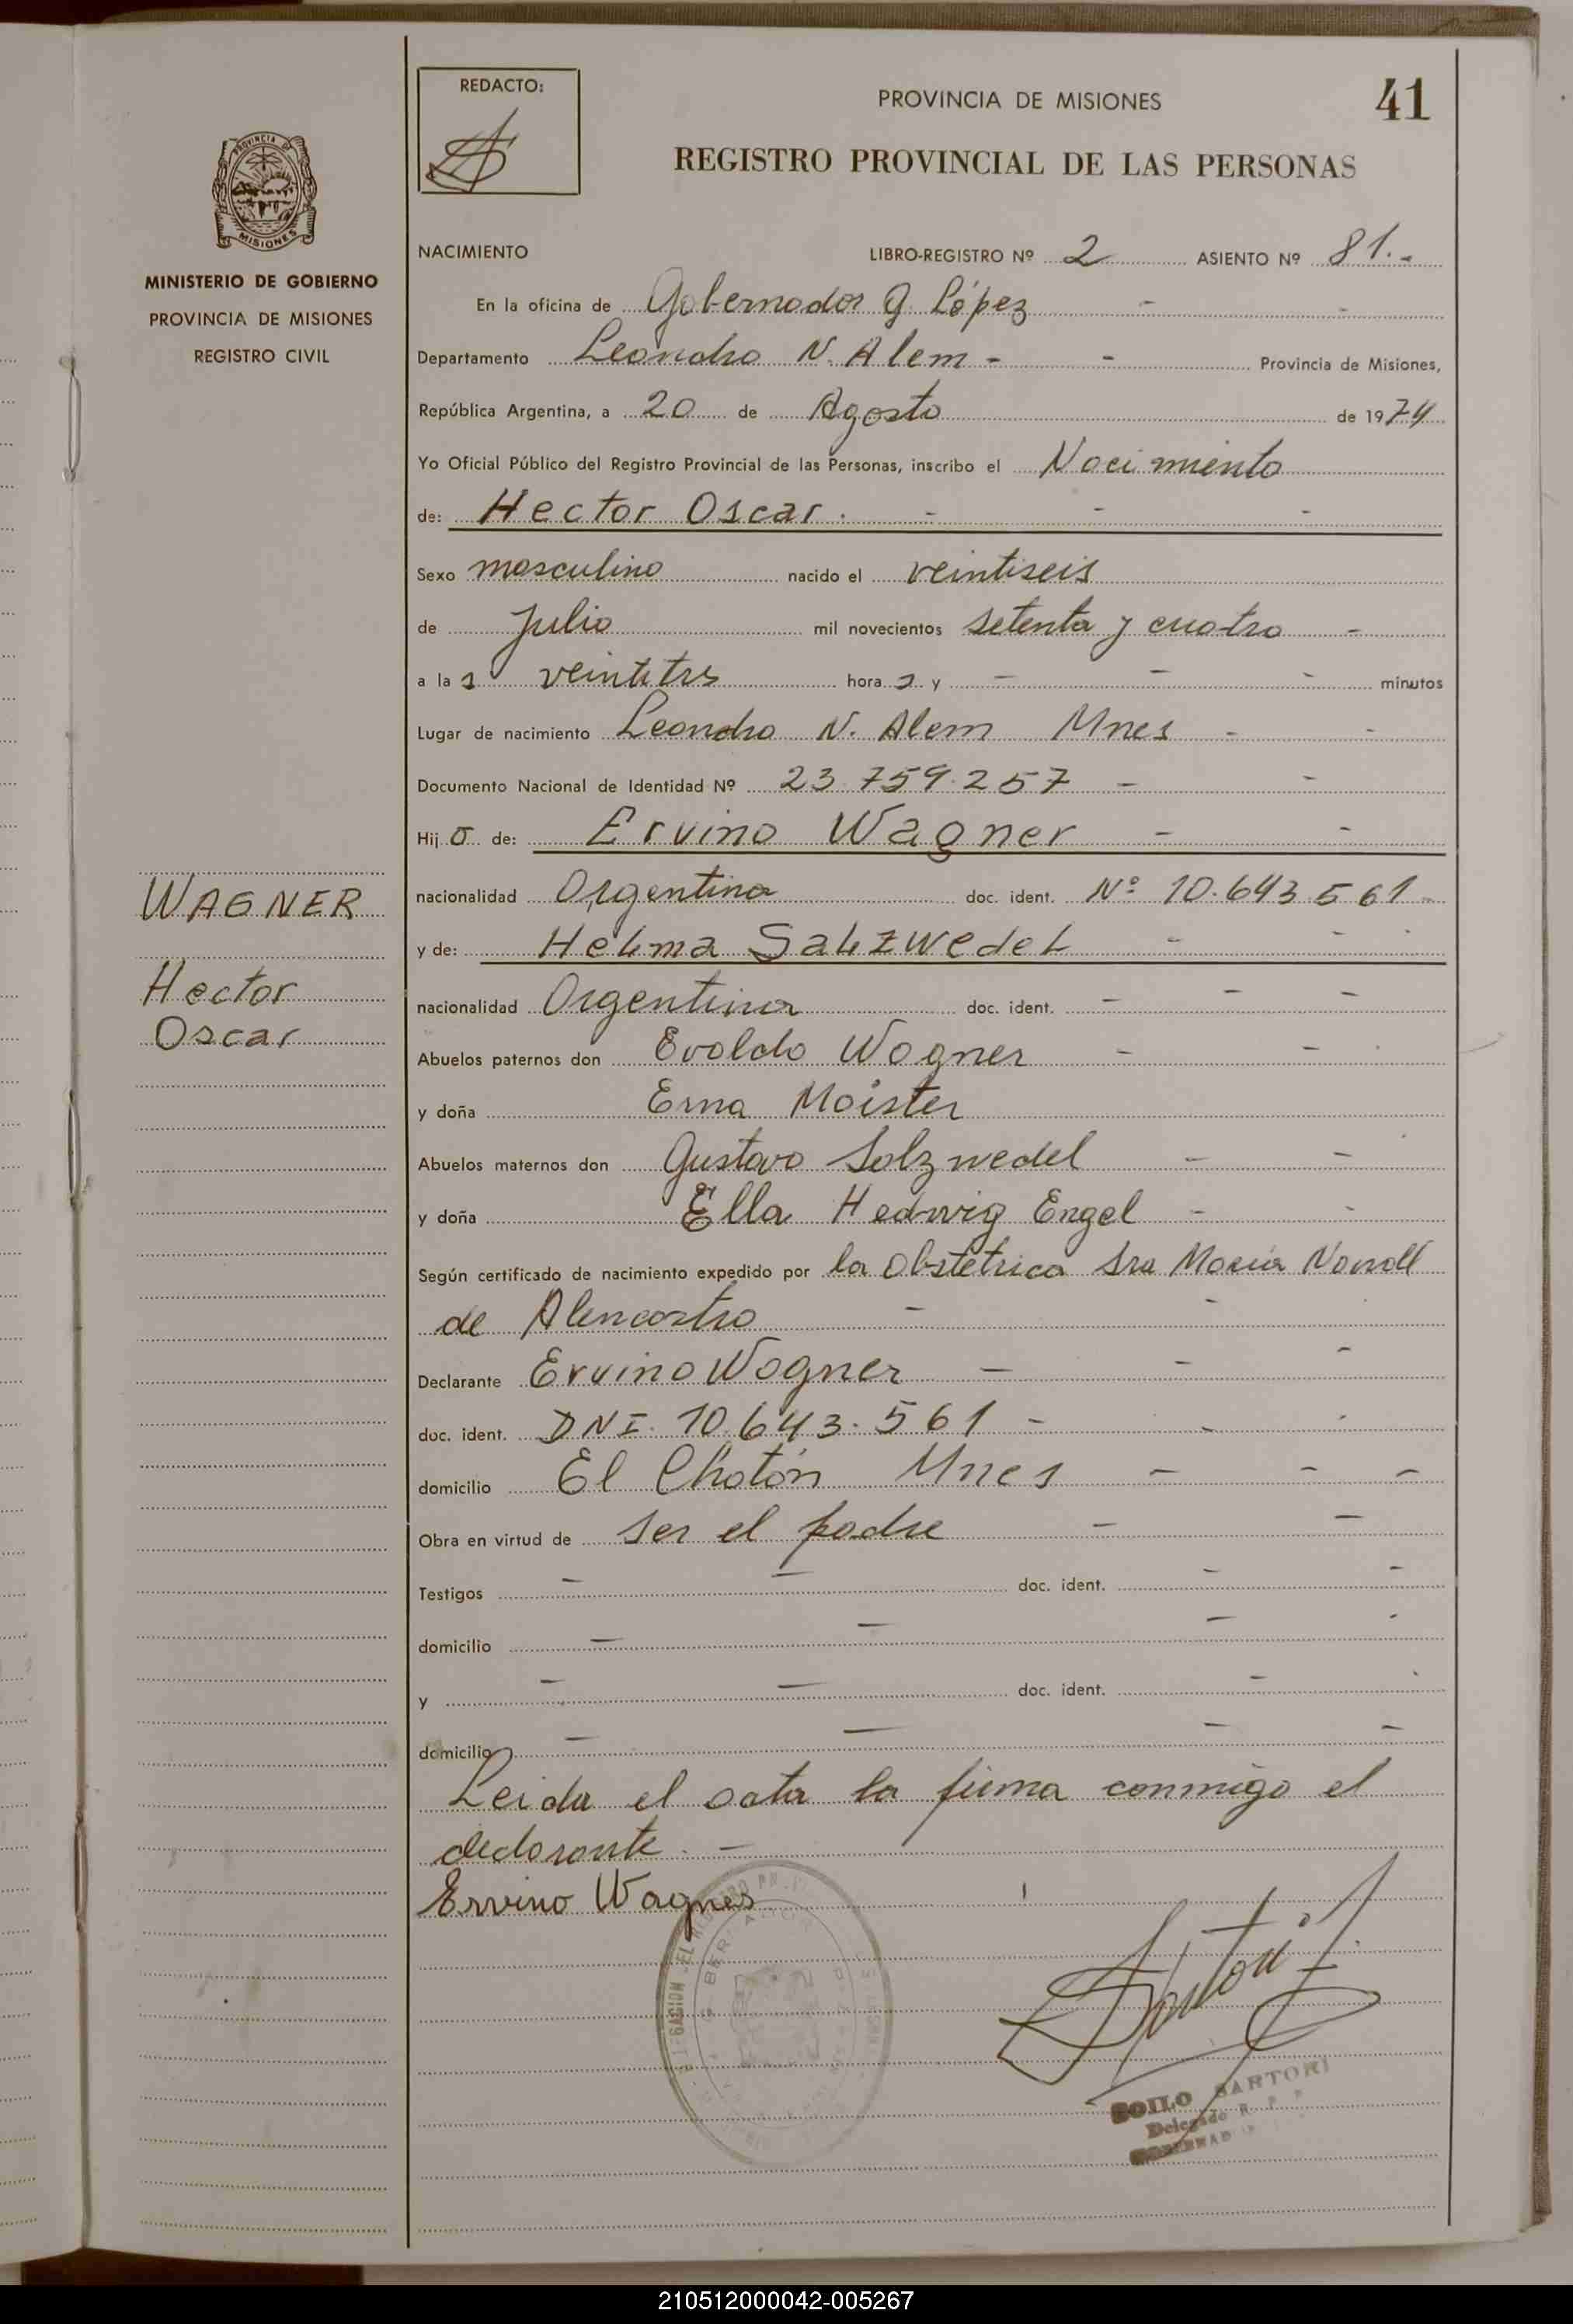 REDACTO:
PROVINCIA DE MISIONES
41
REGISTRO PROVINCIAL DE LAS PERSONAS
PROVINCIA DE
MISIONES
MINISTERIO DE GOBIERNO
PROVINCIA DE MISIONES
REGISTRO CIVIL
NACIMIENTO LIBRO-REGISTRO Nº 2 ASIENTO Nº 81.-
En la oficina de Gobernador G. López - -
Departamento Leandro N. Alem - - Provincia de Misiones,
República Argentina, a 20 de Agosto de 1974
Yo Oficial Público del Registro Provincial de las Personas, inscribo el Nacimiento
de: Hector Oscar. - - -
Sexo masculino nacido el veintiseis
de Julio mil novecientos setenta y cuatro -
a las veintitres horas y - - - minutos
Lugar de nacimiento Leandro N. Alem Mnes - -
Documento Nacional de Identidad Nº 23.759.257 - -
Hijo de: Ervino Wagner - -
WAGNER
Hector
Oscar
nacionalidad Argentina doc. ident. Nº 10.643.561
y de: Helma Salzwedel - - -
nacionalidad Argentina doc. ident. - - -
Abuelos paternos don Evaldo Wagner - -
y doña Erna Moister
Abuelos maternos don Gustavo Salzwedel - -
y doña Ella Hedwig Engel - -
Según certificado de nacimiento expedido por la Obstetrica Sra Maria
de Alencastro - -
Declarante Ervino Wagner - - -
doc. ident. DNI. 10.643.561 - - -
domicilio El Chatón Mnes - - -
Obra en virtud de ser el padre - -
Testigos - - doc. ident. - -
domicilio - - - -
y - - doc. ident. -
domicilio - - - -
Leida el acta la firma conmigo el
declarante. -
Ervino Wagner
Sartori
SOILO SARTORI
Delegado R. P. P.
210512000042-005267